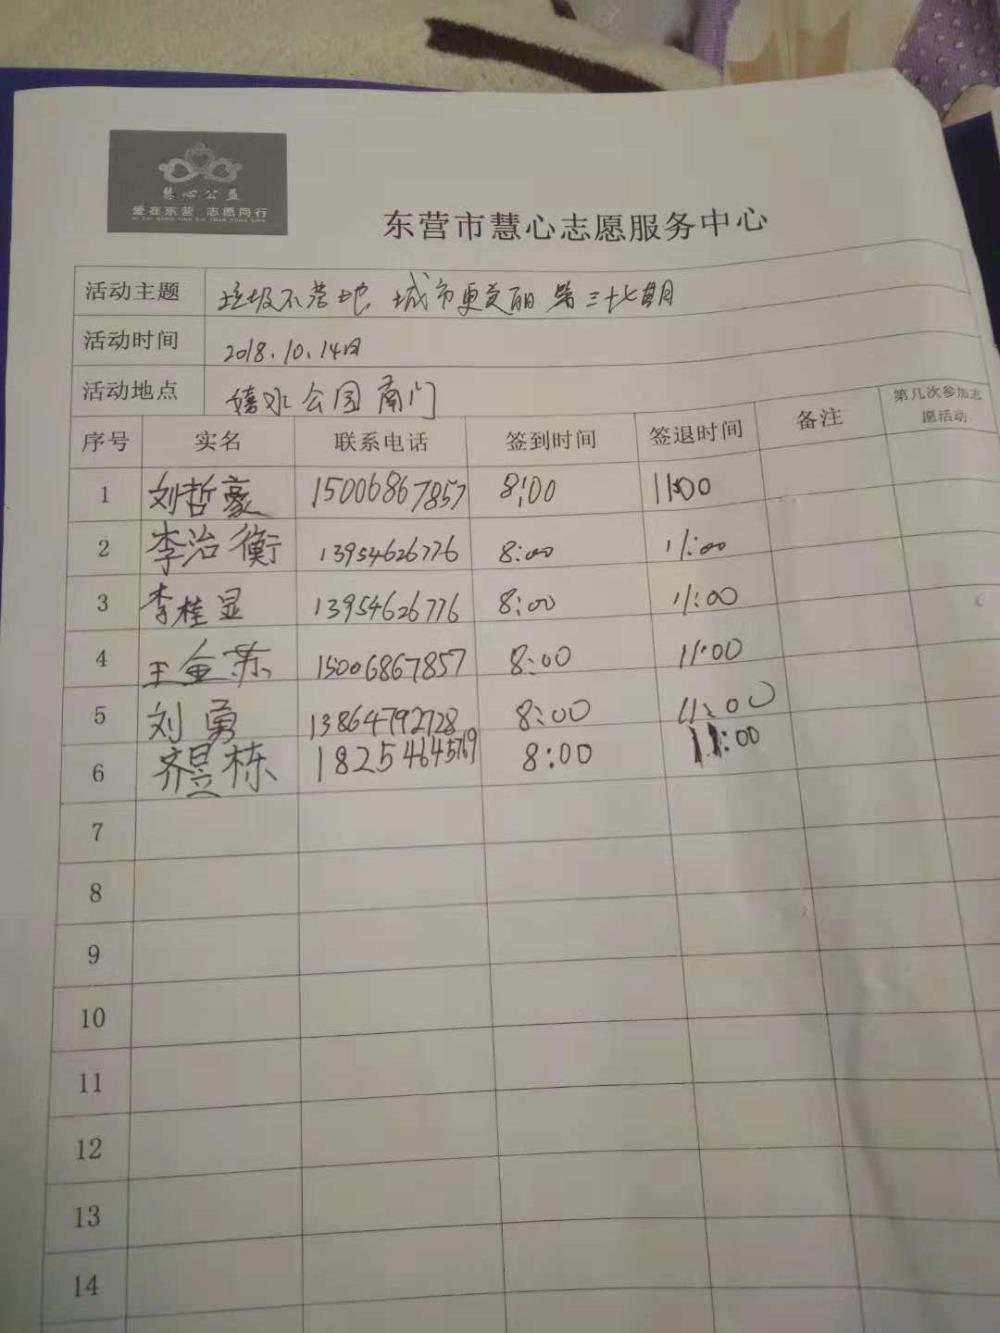 慧心公益
爱在东营 志愿同行
东营市慧心志愿服务中心
活动主题 垃圾不落地 城市更美丽 第三十七期
活动时间 2018.10.14日
活动地点 嬉水公园南门
序号 实名 联系电话 签到时间 签退时间 备注 第几次参加志愿活动
1 刘哲豪 15006867857 8:00 11:00
2 李治衡 13954626776 8:00 11:00
3 李桂显 13954626776 8:00 11:00
4 王金苏 15006867857 8:00 11:00
5 刘勇 13864792728 8:00 11:00
6 齐昱栋 18254645769 8:00 11:00
7
8
9
10
11
12
13
14